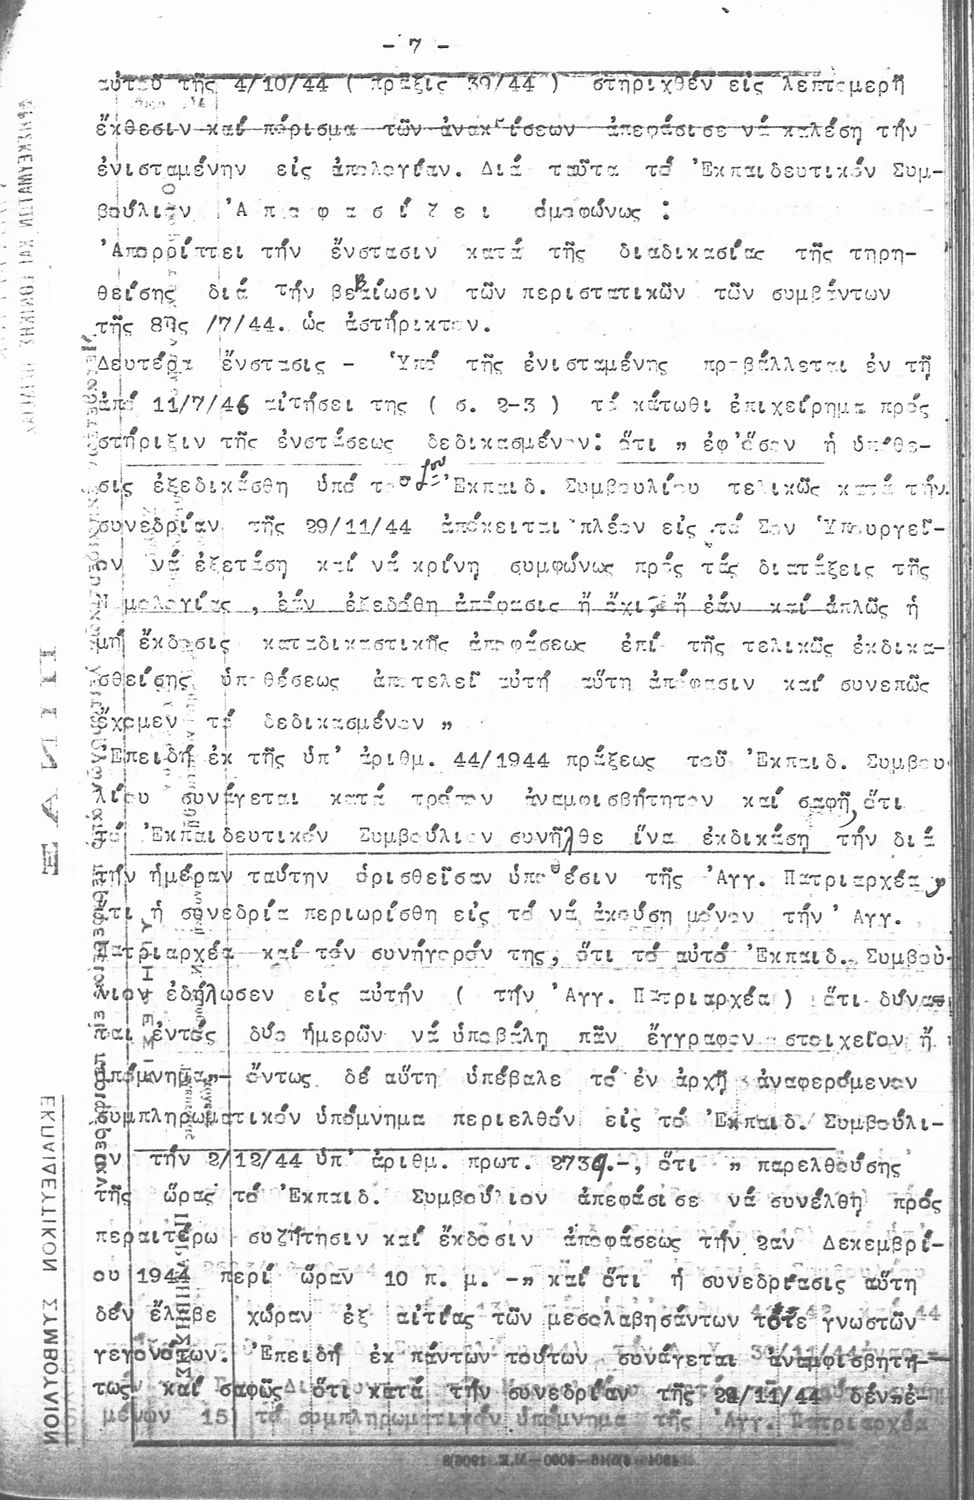 - 7 -
αὐτοῦ τῆς 4/10/44 ( πρᾶξις 39/44 ) στηριχθέν εἰς λεπτομερῆ
ἔκθεσιν καί πόρισμα τῶν ἀνακρίσεων ἀπεφάσισε νά καλέση τήν
ἐνισταμένην εἰς ἀπολογίαν. Διά ταῦτα τό Ἐκπαιδευτικόν Συμ-
βούλιον Ἀ π ο φ α σ ί ζ ε ι ὁμοφώνως :
Ἀπορρίπτει τήν ἔνστασιν κατά τῆς διαδικασίας τῆς τηρη-
θείσης διά τήν βεβαίωσιν τῶν περιστατικῶν τῶν συμβάντων
τῆς 8ης /7/44. ὡς ἀστήρικτον.
Δευτέρα ἔνστασις - Ὑπό τῆς ἐνισταμένης προβάλλεται ἐν τῇ
ἀπό 11/7/46 αἰτήσει της ( σ. 2-3 ) τό κάτωθι ἐπιχείρημα πρός
στήριξιν τῆς ἐνστάσεως δεδικασμένον: ὅτι " ἐφ'ὅσον ἡ ὑπόθε-
σις ἐξεδικάσθη ὑπό τοῦ Ἐκπαιδ. Συμβουλίου τελικῶς κατά τήν
συνεδρίαν τῆς 29/11/44 ἀπόκειται πλέον εἰς τό Σον Ὑπουργεῖ-
ον νά ἐξετάση καί νά κρίνη συμφώνως πρός τάς διατάξεις τῆς
Νομολογίας , ἐάν ἐξεδόθη ἀπόφασις ἤ ὄχι, ἤ ἐάν καί ἁπλῶς ἡ
μή ἔκδοσις καταδικαστικῆς ἀποφάσεως ἐπί τῆς τελικῶς ἐκδικα-
σθείσης ὑποθέσεως ἀποτελεῖ αὐτή αὕτη ἀπόφασιν καί συνεπῶς
ἔχομεν τό δεδικασμένον "
Ἐπειδή ἐκ τῆς ὑπ' ἀριθμ. 44/1944 πράξεως τοῦ Ἐκπαιδ. Συμβου-
λίου συνάγεται κατά τρόπον ἀναμφισβήτητον καί σαφῆ, ὅτι
τό Ἐκπαιδευτικόν Συμβούλιον συνῆλθε ἵνα ἐκδικάση τήν διά
τήν ἡμέραν ταύτην ὁρισθεῖσαν ὑπόθεσιν τῆς Ἀγγ. Πατριαρχέα,
ὅτι ἡ συνεδρία περιωρίσθη εἰς τό νά ἀκούση μόνον τήν Ἀγγ.
Πατριαρχέα καί τόν συνήγορόν της, ὅτι τό αὐτό Ἐκπαιδ. Συμβού-
λιον ἐδήλωσεν εἰς αὐτήν ( τήν Ἀγγ. Πατριαρχέα ) ὅτι δύνα-
ται ἐντός δύο ἡμερῶν νά ὑποβάλη πᾶν ἔγγραφον στοιχεῖον ἤ
ὑπόμνημα"- ὄντως δέ αὕτη ὑπέβαλε τό ἐν ἀρχῇ ἀναφερόμενον
συμπληρωματικόν ὑπόμνημα περιελθόν εἰς τό Ἐκπαιδ. Συμβούλι-
ον τήν 2/12/44 ὑπ' ἀριθμ. πρωτ. 2739.-, ὅτι " παρελθούσης
τῆς ὥρας τό Ἐκπαιδ. Συμβούλιον ἀπεφάσισε νά συνέλθη πρός
περαιτέρω συζήτησιν καί ἔκδοσιν ἀποφάσεως τήν 2αν Δεκεμβρί-
ου 1944 περί ὥραν 10 π. μ. -" καί ὅτι ἡ συνεδρίασις αὕτη
δέν ἔλαβε χώραν ἐξ αἰτίας τῶν μεσολαβησάντων τότε γνωστῶν
γεγονότων. Ἐπειδή ἐκ πάντων τούτων συνάγεται ἀναμφισβητή-
τως καί σαφῶς ὅτι κατά τήν συνεδρίαν τῆς 29/11/44 δέν"ἐ-
μένων 15) τό συμπληρωματικόν ὑπόμνημα τῆς Ἀγγ. Πατριαρχέα
ΕΚΠΑΙΔΕΥΤΙΚΟΝ ΣΥΜΒΟΥΛΙΟΝ